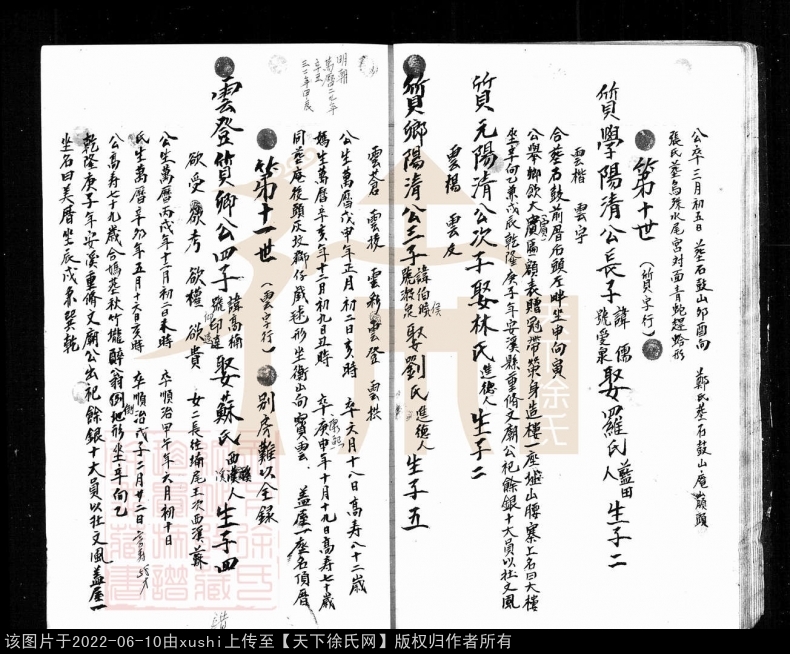 公卒三月初五日 墓石鼓山卯酉向 鄭氏墓石鼓山庵巔頭
張氏墓烏殊水尾宮对面青蛇趕蛤形
第十世(質字行)
質學陽清公長子諱儒號受泉娶羅氏藍田人生子二
雲楷 雲宇
合墓石鼓前厝石頭左畔坐申向寅
公舉鄉飲大賓匾額表贈冠帶榮身造樓一座于山腰寨上名曰大樓
坐辛向乙兼戊辰乾隆庚子年安溪縣重脩文廟公祀餘銀十大員以社文風
質元陽清公次子娶林氏進德人生子二
雲楊 雲友
質鄉陽清公三子諱伯號毅娶劉氏進德人生子五
雲蒼 雲後 雲新 雲登 雲拱
公生萬曆戊申年正月初二日亥時 卒六月十八日高寿八十二歲
媽生萬曆辛亥年十二月初九日丑時 卒康熙庚申年十月十九日高寿七十歲
同墓庵後頭灰坟獅仔戲毬形坐衡山向寶雲 蓋座一座名頂厝
明朝
萬曆二九年
辛丑
三二年甲辰
第十一世(雲字行) 別房難以全錄
雲登質鄉公四子諱高桶號印達娶蘇氏西溪人生子四
欲受 欲考 欲禮 欲貴 女二長佳埔尾王次西溪蘇
公生萬曆丙戌年十一月初二日未時 卒順治甲午年六月初十日
氏生萬曆辛卯年五月十六日亥時 卒順治戊子二月廿二日
公高寿七十九歲合媽墓秋竹壠醉翁倒地形坐辛向乙
乾隆庚子年安溪重脩文廟公出祀餘銀十大員以社文風蓋屋一
坐名曰美厝坐辰戌兼巽乾
该图片于2022-06-10由xushi上传至【天下徐氏网】版权归作者所有